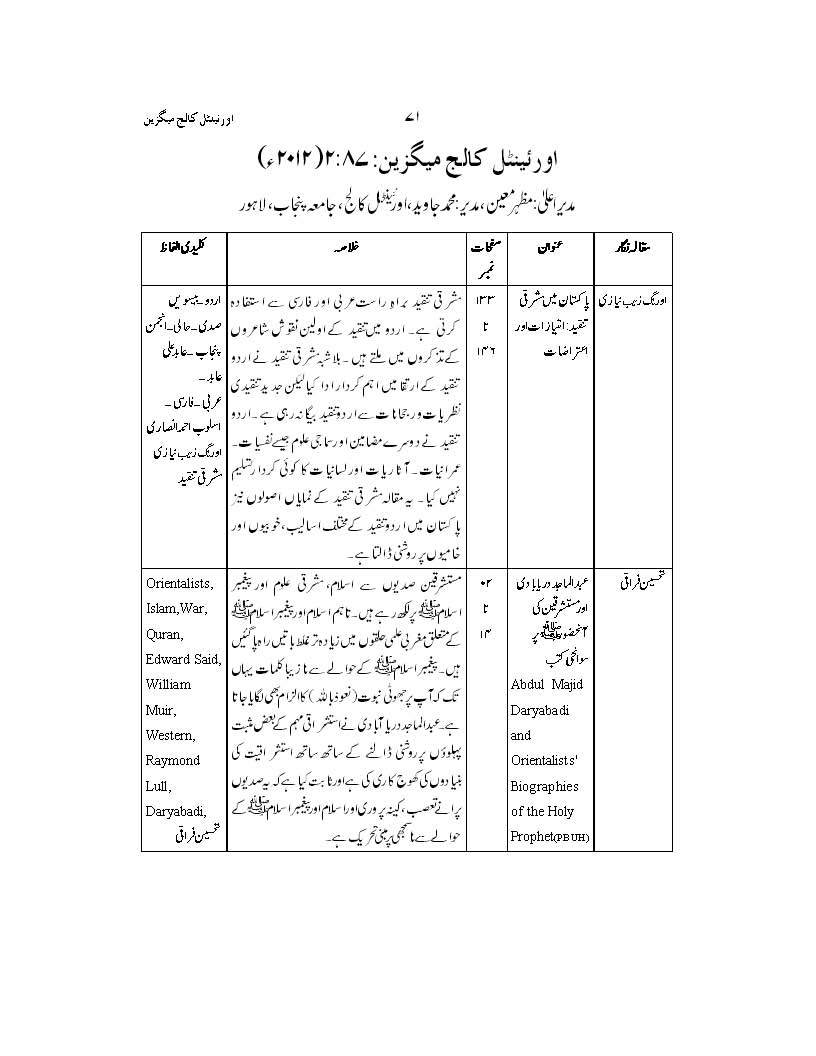 اورئینٹل کالج میگزین
۷۱
اورئینٹل کالج میگزین: ۲:۸۷(۲۰۱۲ء)
مدیر اعلیٰ: مظہر معین، مدیر: محمد جاوید، اورئینٹل کالج، جامعہ پنجاب، لاہور
مقالہ نگار
عنوان
صفحات
نمبر
خلاصہ
کلیدی الفاظ
اورنگ زیب نیازی
پاکستان میں مشرقی
تنقید: امتیازات اور
اعتراضات
۱۳۳
تا
۱۴۶
مشرقی تنقید براہِ راست عربی اور فارسی سے استفادہ
کرتی ہے۔ اردو میں تنقید کے اولین نقوش شاعروں
کے تذکروں میں ملتے ہیں۔ بلاشبہ مشرقی تنقید نے اردو
تنقید کے ارتقا میں اہم کردار ادا کیا لیکن جدید تنقیدی
نظریات ورجحانات سے اردو تنقید بیگانہ رہی ہے۔ اردو
تنقید نے دوسرے مضامین اور سماجی علوم جیسے نفسیات۔
عمرانیات۔ آثاریات اور لسانیات کا کوئی کردار تسلیم
نہیں کیا۔ یہ مقالہ مشرقی تنقید کے نمایاں اصولوں نیز
پاکستان میں اردو تنقید کے مختلف اسالیب، خوبیوں اور
خامیوں پر روشنی ڈالتا ہے۔
اردو۔بیسویں
صدی۔حالی۔انجمن
پنجاب۔عابد علی
عابد۔
عربی۔فارسی۔
اسلوب احمد انصاری
اورنگ زیب نیازی
مشرقی تنقید
تحسین فراقی
عبدالماجد دریابادی
اور مستشرقین کی
آنحضورﷺ پر
سوانحی کتب
Abdul Majid
Daryabadi
and
Orientalists'
Biographies
of the Holy
Prophet(PBUH)
۰۲
تا
۱۴
مستشرقین صدیوں سے اسلام، مشرقی علوم اور پیغمبر
اسلامﷺ پر لکھ رہے ہیں۔ تاہم اسلام اور پیغمبر اسلامﷺ
کے متعلق مغربی علمی حلقوں میں زیادہ تر غلط باتیں راہ پا گئیں
ہیں۔ پیغمبر اسلامﷺ کے حوالے سے نازیبا کلمات یہاں
تک کہ آپ پر جھوٹی نبوت (نعوذ باللہ) کا الزام بھی لگایا جاتا
ہے۔ عبدالماجد دریا آبادی نے استشراقی مہم کے بعض مثبت
پہلوؤں پر روشنی ڈالنے کے ساتھ ساتھ استشراقیت کی
بنیادوں کی کھوج کاری کی ہے اور ثابت کیا ہے کہ یہ صدیوں
پرانے تعصب، کینہ پروری اور اسلام اور پیغمبر اسلامﷺ کے
حوالے سے ناسمجھی پر مبنی تحریک ہے۔
Orientalists,
Islam,War,
Quran,
Edward Said,
William
Muir,
Western,
Raymond
Lull,
Daryabadi,
تحسین فراقی